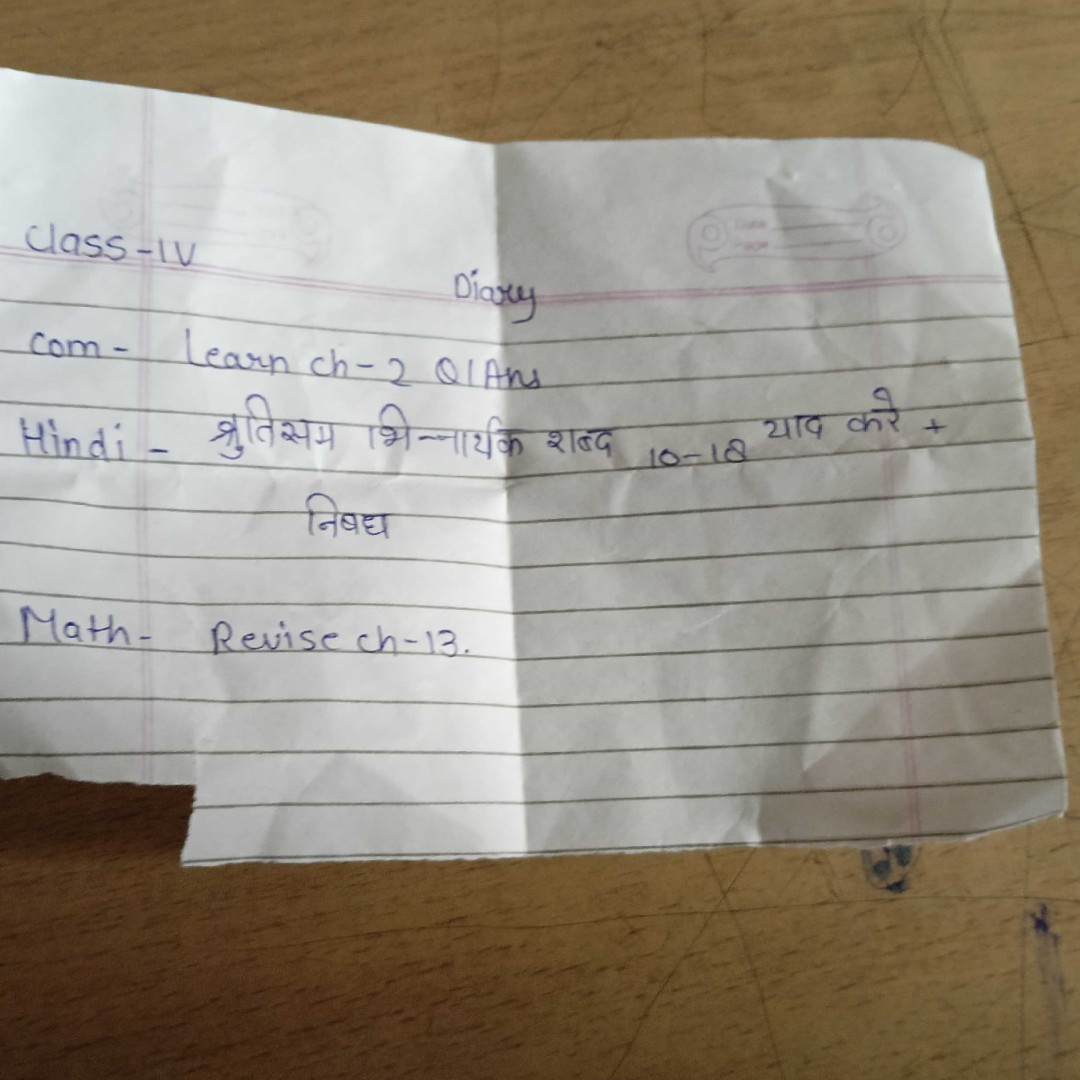 Class-IV
Diary
Com- Learn ch-2 Q/Ans
Hindi - श्रुतिसम भिन्नार्थक शब्द 10-18 याद करे +
निबध
Math- Revise ch-13.